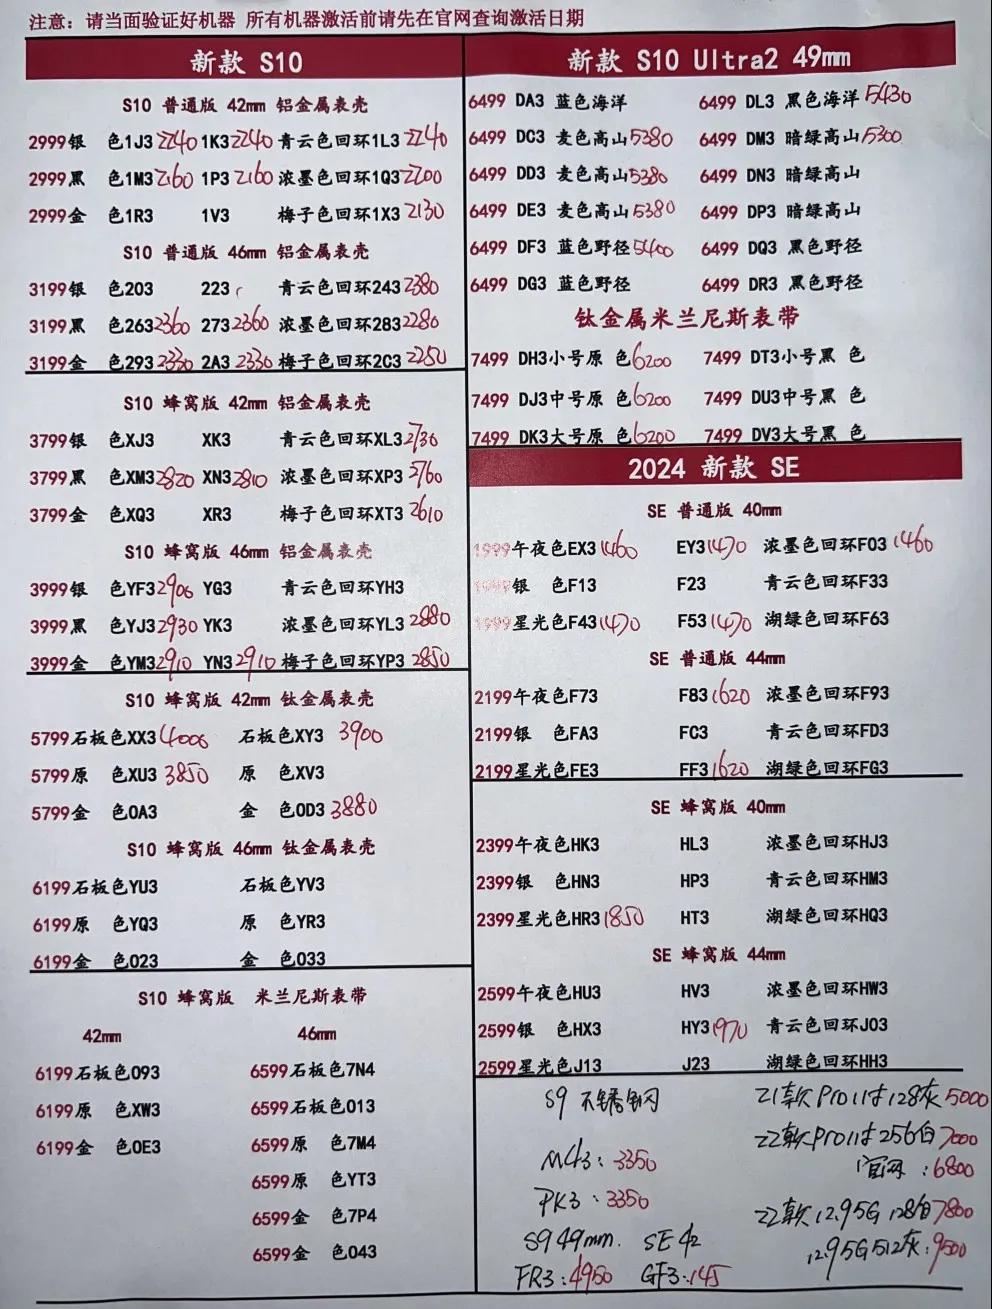 注意：请当面验证好机器 所有机器激活前请先在官网查询激活日期
新款 S10
S10 普通版 42mm 铝金属表壳
2999银 色1J3 2240 1K3 2240 青云色回环1L3 2240
2999黑 色1M3 2160 1P3 2160 浓墨色回环1Q3 2200
2999金 色1R3 1V3 梅子色回环1X3 2130
S10 普通版 46mm 铝金属表壳
3199银 色203 223 青云色回环243 2380
3199黑 色263 2360 273 2360 浓墨色回环283 2280
3199金 色293 2330 2A3 2330 梅子色回环2C3 2250
S10 蜂窝版 42mm 铝金属表壳
3799银 色XJ3 XK3 青云色回环XL3 2730
3799黑 色XM3 2820 XN3 2810 浓墨色回环XP3 2760
3799金 色XQ3 XR3 梅子色回环XT3 2610
S10 蜂窝版 46mm 铝金属表壳
3999银 色YF3 2900 YG3 青云色回环YH3
3999黑 色YJ3 2930 YK3 浓墨色回环YL3 2880
3999金 色YM3 2910 YN3 2910 梅子色回环YP3 2850
S10 蜂窝版 42mm 钛金属表壳
5799石板色XX3 4000 石板色XY3 3900
5799原 色XU3 3850 原 色XV3
5799金 色0A3 金 色0D3 3880
S10 蜂窝版 46mm 钛金属表壳
6199石板色YU3 石板色YV3
6199原 色YQ3 原 色YR3
6199金 色023 金 色033
S10 蜂窝版 米兰尼斯表带
42mm 46mm
6199石板色093 6599石板色7N4
6199原 色XW3 6599石板色013
6199金 色0E3 6599原 色7M4
6599原 色YT3
6599金 色7P4
6599金 色043
新款 S10 Ultra2 49mm
6499 DA3 蓝色海洋 6499 DL3 黑色海洋 5430
6499 DC3 麦色高山 5380 6499 DM3 暗绿高山 5300
6499 DD3 麦色高山 5380 6499 DN3 暗绿高山
6499 DE3 麦色高山 5380 6499 DP3 暗绿高山
6499 DF3 蓝色野径 5400 6499 DQ3 黑色野径
6499 DG3 蓝色野径 6499 DR3 黑色野径
钛金属米兰尼斯表带
7499 DH3小号原 色 6200 7499 DT3小号黑 色
7499 DJ3中号原 色 6200 7499 DU3中号黑 色
7499 DK3大号原 色 6200 7499 DV3大号黑 色
2024 新款 SE
SE 普通版 40mm
1999午夜色EX3 1460 EY3 1470 浓墨色回环F03 1460
1999银 色F13 F23 青云色回环F33
1999星光色F43 1470 F53 1470 湖绿色回环F63
SE 普通版 44mm
2199午夜色F73 F83 1620 浓墨色回环F93
2199银 色FA3 FC3 青云色回环FD3
2199星光色FE3 FF3 1620 湖绿色回环FG3
SE 蜂窝版 40mm
2399午夜色HK3 HL3 浓墨色回环HJ3
2399银 色HN3 HP3 青云色回环HM3
2399星光色HR3 1850 HT3 湖绿色回环HQ3
SE 蜂窝版 44mm
2599午夜色HU3 HV3 浓墨色回环HW3
2599银 色HX3 HY3 1970 青云色回环J03
2599星光色J13 J23 湖绿色回环HH3
S9 不锈钢
MC43：3350
PK3：3350
S9 49mm. SE 42
FR3：4950 GF3：145
21款Pro11寸128灰5000
22款Pro11寸256白7000
官网：6800
22款12.95G 128白7800
12.95G512灰：9500